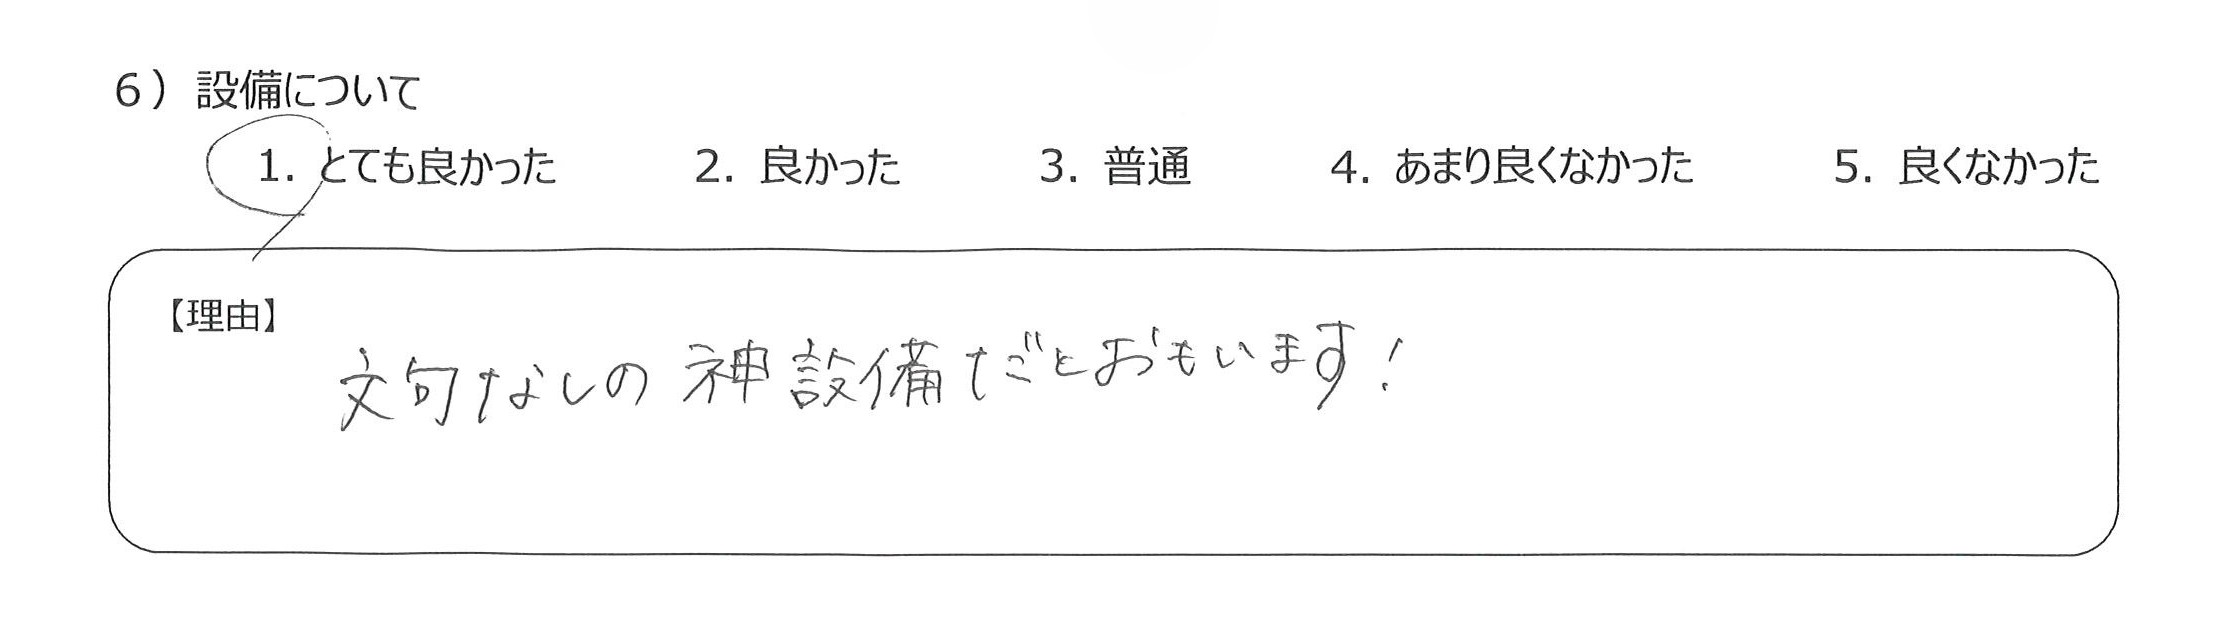 6）設備について
1. とても良かった 2. 良かった 3. 普通 4. あまり良くなかった 5. 良くなかった
【理由】
文句なしの神設備だとおもいます!